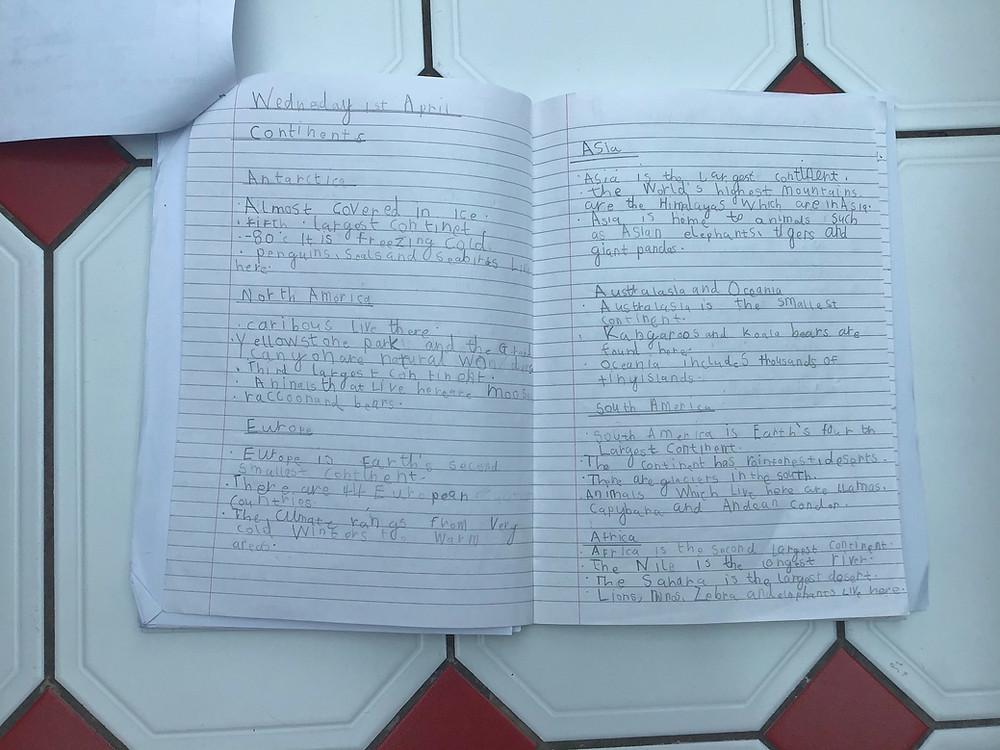 Wedneday 1st April
Continents
Antarctica
· Almost covered in ice.
· fifth largest continet
· -80°c It is freezing cold.
· penguins, seals and seabirds Live
here.
North America
· caribous live there.
· Yellowstone park and the Grand
canyon are natural wonders
· Third largest continent.
· Animals that Live here are moose
· raccoon and bears.
Europe
· Europe is Earth's second
smallest continent.
· There are 44 European
Countries.
· The climate rangs from very
cold winters to warm
areas.
Asia
· Asia is the largest continent.
· the World's highest mountains
are the Himalayas which are in Asia.
· Asia is home to animals such
as Asian elephants, tigers and
giant pandas.
Australasia and Oceania
· Australasia is the smallest
continent.
· Kangaroos and koala bears are
found here.
· Oceania includes thousands of
tiny islands.
South America
· South America is Earth's fourth
Largest Continent.
· The continent has rainforests deserts.
· There are glaciers in the south.
Animals which live here are llamas,
Capybara and Andean Condor.
Africa
· Africa is the second largest continent.
· The Nile is the longest river.
· The Sahara is the largest desert.
· Lions, rhinos, Zebra and elephants live here.